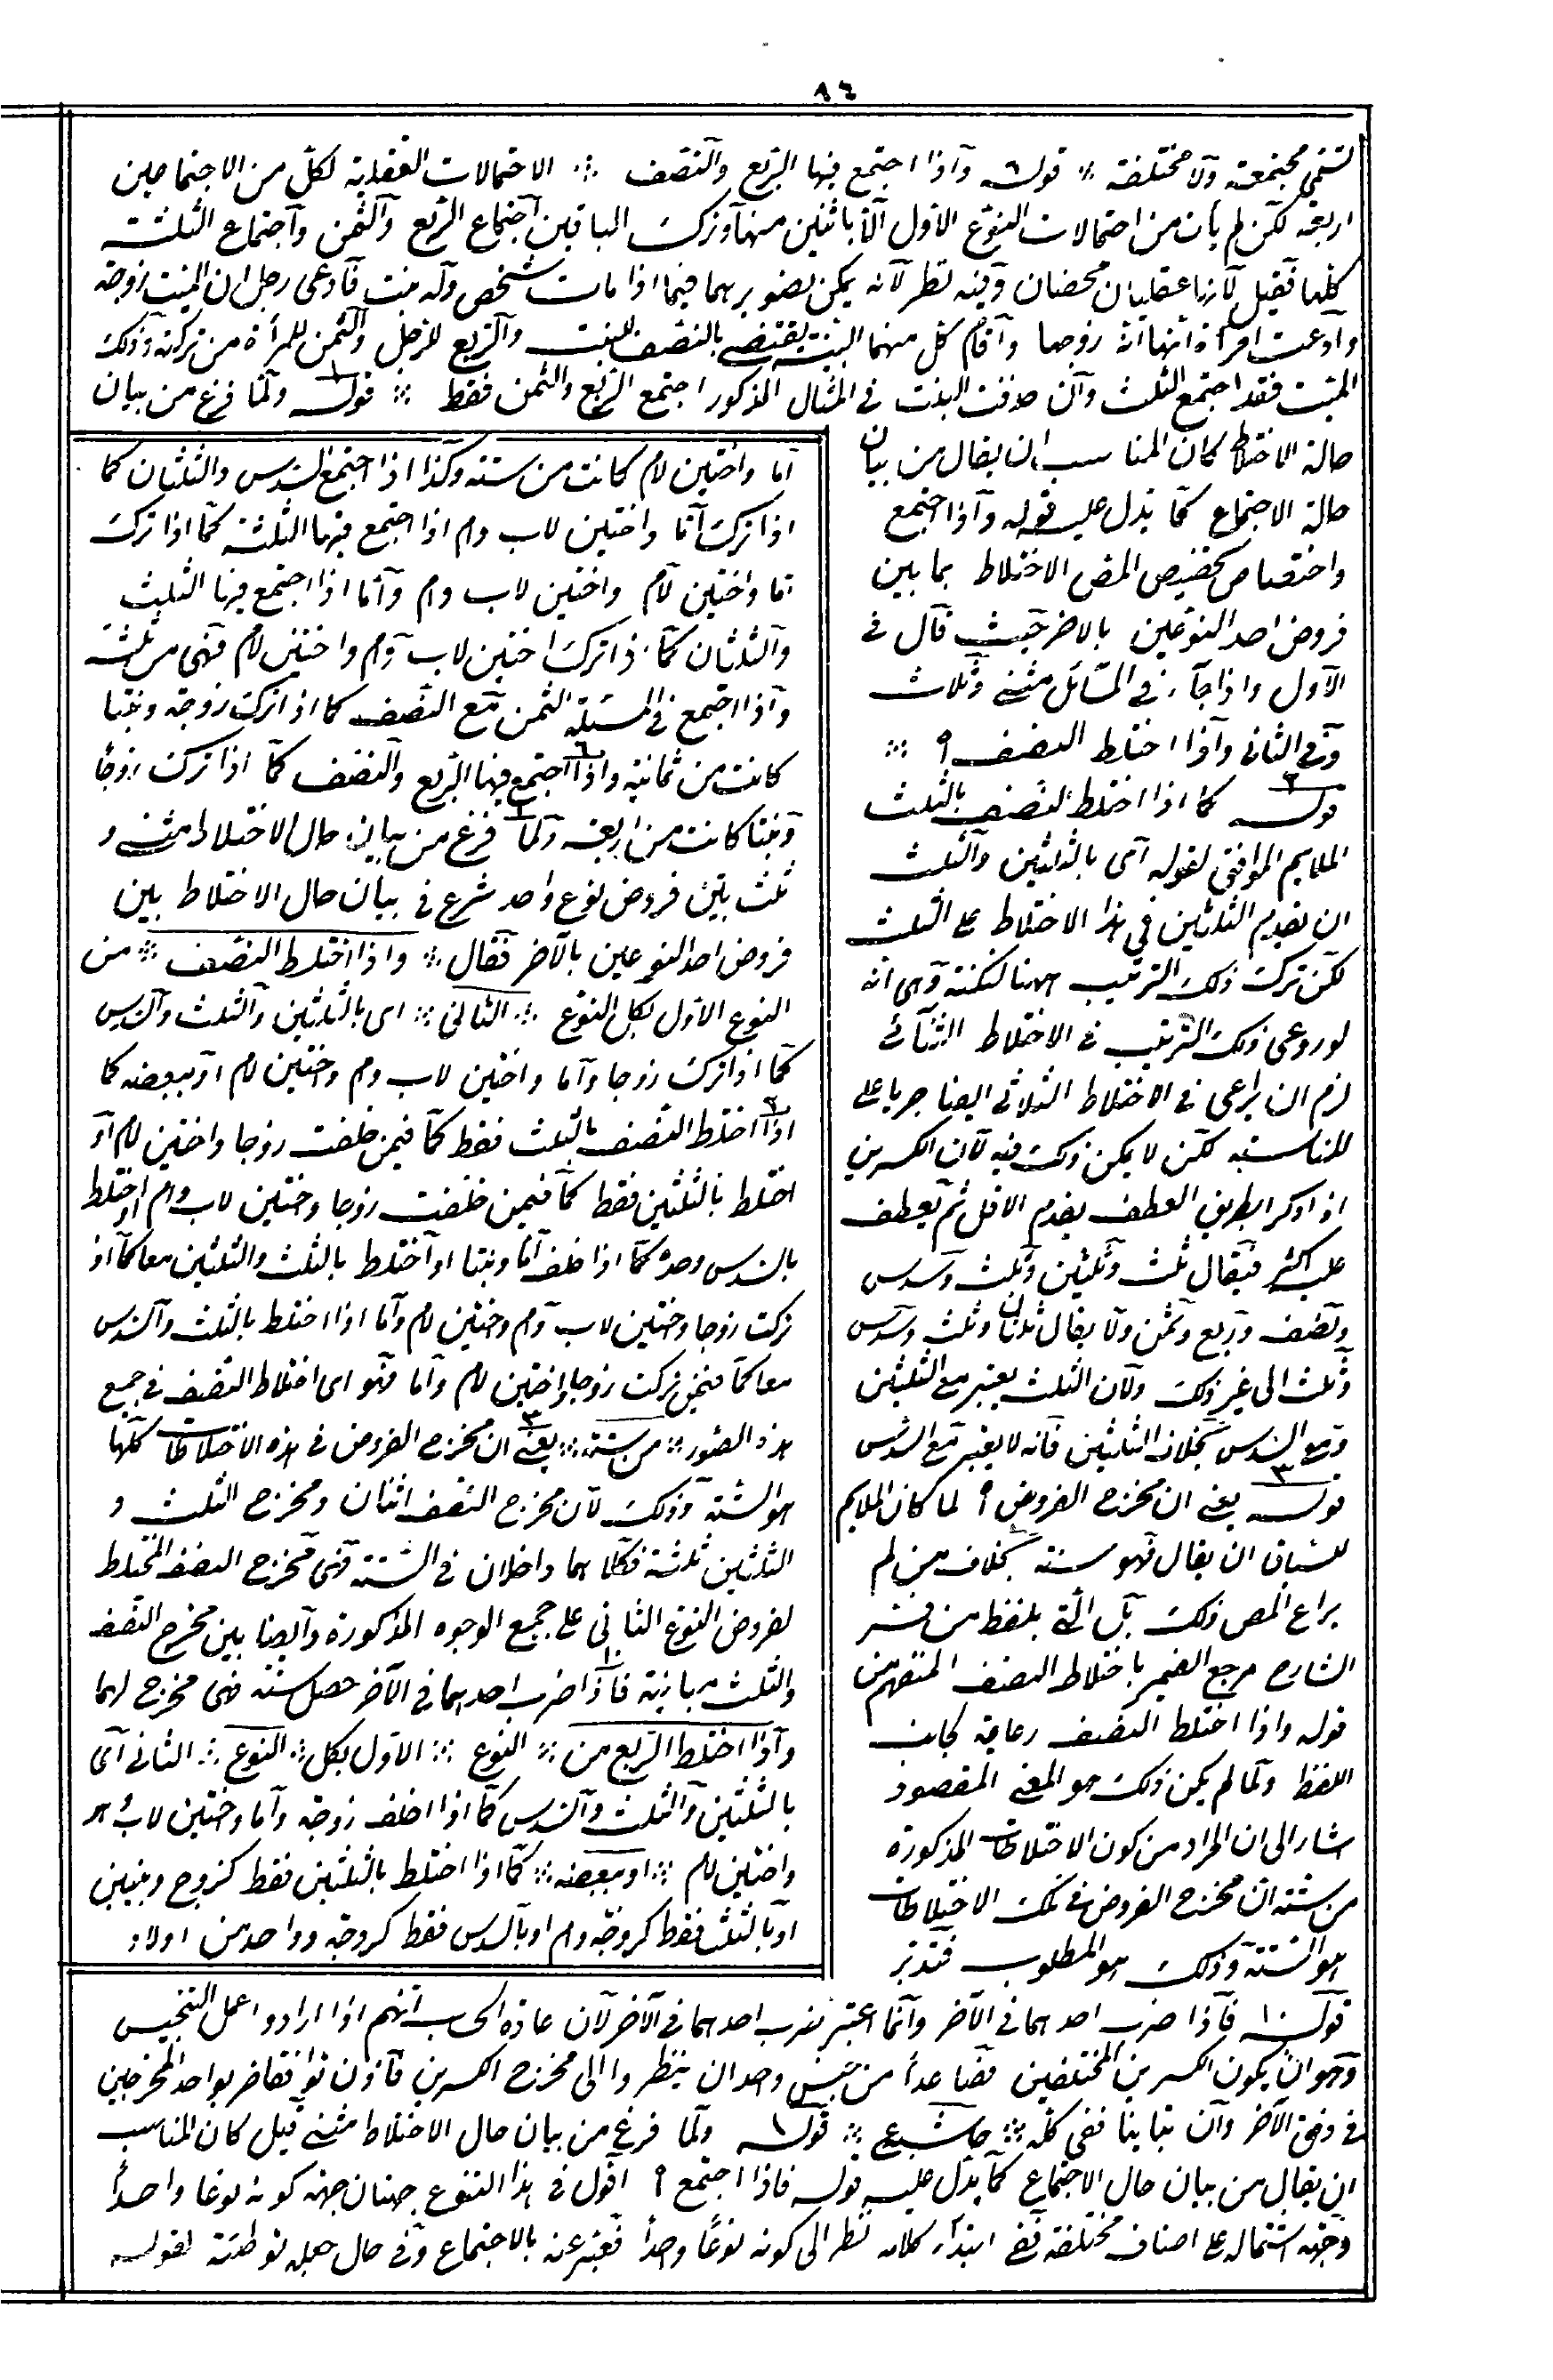 ٩٤
لتسمى مجتمعة ولا مختلفة قوله واذا اجتمع فيها الربع والنصف الاحتمالات العقلية لكل من الاجتماعين
اربعة لكن لم يأت من احتمالات النوع الاول الا باثنين منها وترك الباقيين اجتماع الربع والثمن واجتماع الثلثة
كلها فقيل لانها عقليان محضان وفيه نظر لانه يمكن تصويرهما فيما اذا مات شخص وله بنت فادعى رجل ان الميت زوجته
وادعت امرأة انها انه زوجها واقام كل منهما البينة يقتضى بالنصف للبنت والربع للرجل والثمن للمرأة من تركة ذلك
الميت فقد اجتمع الثلث وان حذفت البنت فى المثال المذكور اجتمع الربع والثمن فقط قوله ١ ولما فرغ من بيان
حالة الاختلاط كان المناسب ان يقال من بيان
حالة الاجتماع كما يدل عليه قوله واذا اجتمع
واختصاص تخصيص المص الاختلاط بما بين
فروض احد النوعين بالاخر حيث قال فى
الاول واذا جاء فى المسائل مثنى وثلاث
وفى الثانى واذا اختلط النصف
قوله ٢ كما اذا اختلط النصف بالثلث
الملايم الموافق لقوله اى بالثلثين والثلث
ان يقدم الثلثين فى هذا الاختلاط على الثلث
لكن ترك ذلك الترتيب ههنا لنكتة وهى انه
لو روعى ذلك الترتيب فى الاختلاط الثنائى
لزم ان يراعى فى الاختلاط الثلاثى ايضا جريا على
المناسبة لكن لا يمكن ذلك فيه لان الكسرين
اذا ذكر بطريق العطف يقدم الاقل ثم يعطف
عليه اكثر فيقال ثلث وثلثين وثلث وسدس
ونصف وربع وثمن ولا يقال ثلثان وثلث وسدس
وثلث الى غير ذلك ولان الثلث يعتبر مع الثلثين
ومع السدس بخلاف الثلثين فانه لا يعتبر مع السدس
قوله ٣ يعنى ان مخرج الفروض لما كان الملايم
للسياق ان يقال فهو ستة بخلاف من لم
يراع المص ذلك بل اتى بلفظ من فسر
الشارح مرجع الضمير باختلاط النصف المتفهم من
قوله واذا اختلط النصف رعاية لجانب
اللفظ ولما لم يكن ذلك هو المعنى المقصود
اشار الى ان المراد من كون الاختلاطات المذكورة
من ستة ان مخرج الفروض فى تلك الاختلاطات
هو الستة وذلك هو المطلوب فتدبر
اما واختين لام كانت من ستة وكذا اذا اجتمع السدس والثلثان كما
اذا ترك اما واختين لاب وام اذا اجتمع فيها الثلثة كما اذا ترك
اما واختين لام واختين لاب وام واما اذا اجتمع فيها الثلث
والثلثان كما اذا ترك اختين لاب وام واختين لام فهى من ثلثة
واذا اجتمع فى المسئلة الثمن مع النصف كما اذا ترك زوجة وبنتا
كانت من ثمانية واذا ٦ اجتمع فيها الربع والنصف كما اذا تركت زوجا
وبنتا كانت من اربعة ولما ١ فرغ من بيان حال الاختلاط مثنى و
ثلث بين فروض نوع واحد شرع فى بيان حال الاختلاط بين
فروض احد النوعين بالآخر فقال واذا اختلط النصف من
النوع الاول بكل النوع الثانى اى بالثلثين والثلث والسدس
كما اذا تركت زوجا واما واختين لاب وام واختين لام او ببعضه كما
اذا ٢ اختلط النصف بالثلث فقط كما فيمن خلفت زوجا واختين لام او
اختلط بالثلثين فقط كما فيمن خلفت زوجا واختين لاب وام او اختلط
بالسدس وحده كما اذا خلف اما وبنتا او اختلط بالثلث والثلثين معا كما اذ
تركت زوجا واختين لاب وام واختين لام واما اذا اختلط بالثلث والسدس
معا كما فيمن تركت زوجا واختين لام واما فهو اى اختلاط النصف فى جميع
هذه الصور من ستة ٣ يعنى ان مخرج الفروض فى هذه الاختلاطات كلها
هو الستة وذلك لان مخرج النصف اثنان ومخرج الثلث و
الثلثين ثلثة فكلاهما داخلان فى الستة فهى مخرج النصف المختلط
لفروض النوع الثانى على جميع الوجوه المذكورة وايضا بين مخرج النصف
والثلث مباينة فاذا ١٠ ضرب احدهما فى الآخر حصل ستة فهى مخرج لهما
واذا اختلط الربع من النوع الاول بكل النوع الثانى اى
بالثلثين والثلث والسدس كما اذا خلف زوجة واما واختين لاب وام
واختين لام او ببعضه كما اذا اختلط بالثلثين فقط كزوج وبنتين
او بالثلث فقط كزوجة وام او بالسدس فقط كزوجة وواحد من اولاد
قوله ١٠ فاذا ضرب احدهما فى الآخر وانما اعتبر ضرب احدهما فى الآخر لان عادة الحساب انهم اذا ارادوا عمل التجنيس
وهو ان يكون الكسرين المختلفين فصاعدا من جنس واحد ان ينظروا الى مخرج الكسرين فان توافقا ضربوا احد المخرجين
فى وفق الآخر وان تباينا ففى كله قوله ١ ولما فرغ من بيان حال الاختلاط مثنى قيل كان المناسب
ان يقال من بيان حال الاجتماع كما يدل عليه قوله فاذا اجتمع اقول فى هذا التنوع جهتان جهة كونه نوعا واحدا
وجهة اشتماله على اصناف مختلفة ففى ابتداء كلامه نظر الى كونه نوعا واحدا فعبر عنه بالاجتماع وفى حال جعله توطئة لقوله